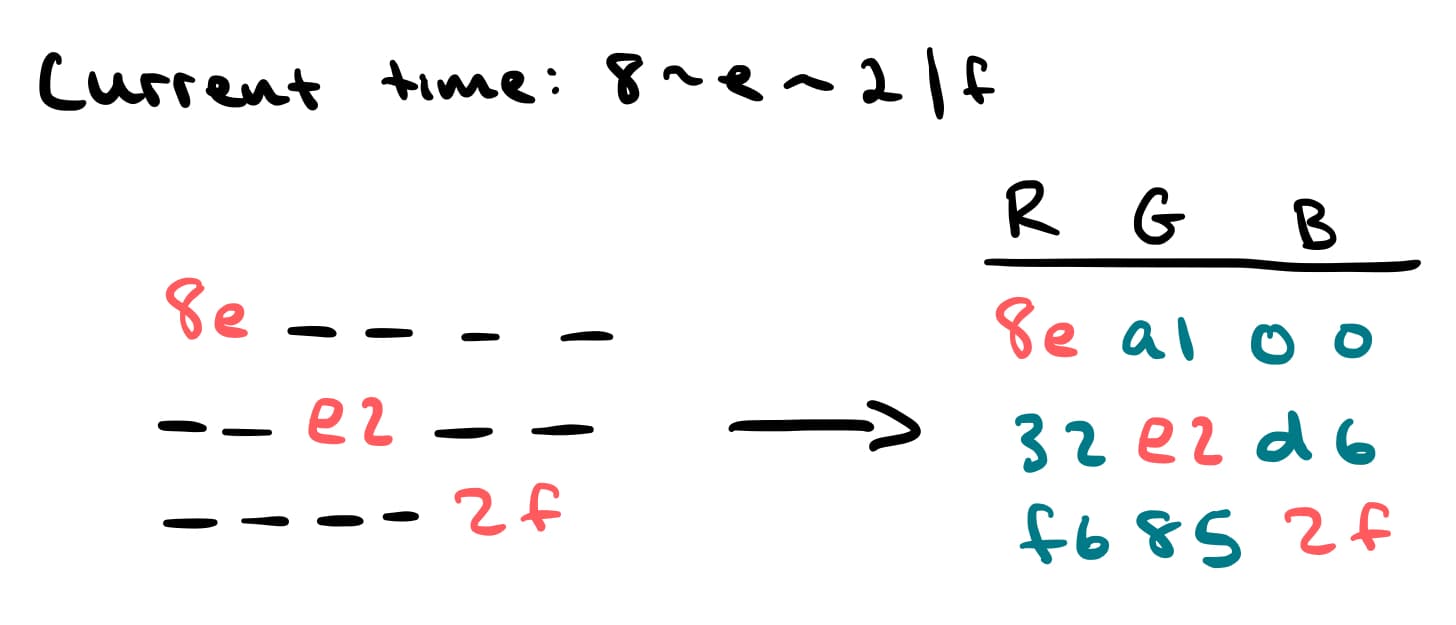 Current time: 8~e~2|f
R G B
8e _ _ _ _
8e a1 00
_ _ e2 _ _
32 e2 d6
_ _ _ _ 2f
f6 85 2f